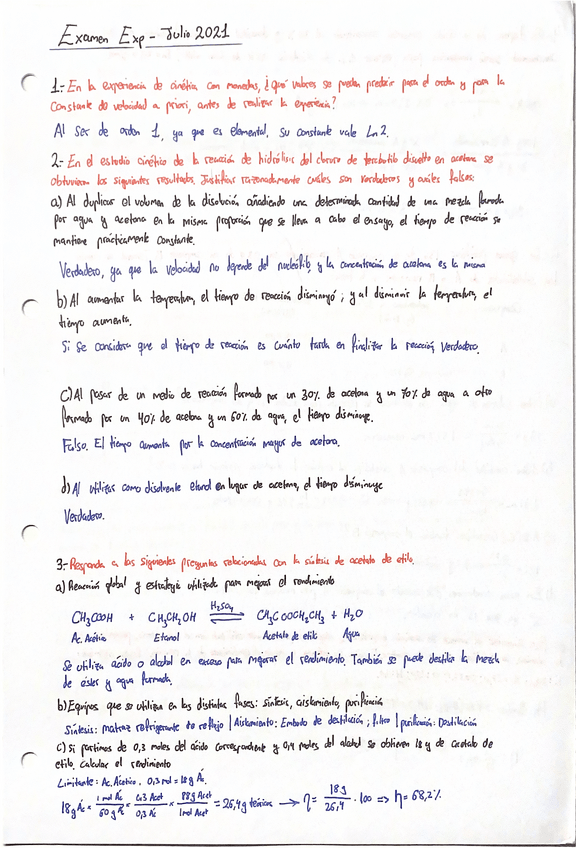 Examen Exp - Julio 2021
1.- En la experiencia de cinética con monedas, ¿qué valores se pueden predecir para el orden y para la
constante de velocidad a priori, antes de realizar la experiencia?
Al ser de orden 1, ya que es elemental, su constante vale Ln 2.
2.- En el estudio cinético de la reacción de hidrólisis del cloruro de tercbutilo disuelto en acetona se
obtuvieron los siguientes resultados. Justificar razonadamente cuáles son verdaderos y cuáles falsos:
a) Al duplicar el volumen de la disolución añadiendo una determinada cantidad de una mezcla formada
por agua y acetona en la misma proporción que se lleva a cabo el ensayo, el tiempo de reacción se
mantiene prácticamente constante.
Verdadero, ya que la velocidad no depende del nucleófilo, y la concentración de acetona es la misma
b) Al aumentar la temperatura, el tiempo de reacción disminuyó; y al disminuir la temperatura, el
tiempo aumenta.
Si se considera que el tiempo de reacción es cuánto tarda en finalizar la reacción Verdadero.
C) Al pasar de un medio de reacción formado por un 30% de acetona y un 70% de agua a otro
formado por un 40% de acetona y un 60% de agua, el tiempo disminuye.
Falso. El tiempo aumenta por la concentración mayor de acetona.
d) Al utilizar como disolvente etanol en lugar de acetona, el tiempo disminuye
Verdadero.
3.- Responda a las siguientes preguntas relacionadas con la síntesis de acetato de etilo.
a) Reacción global y estrategia utilizada para mejorar el rendimiento
CH₃COOH + CH₃CH₂OH ⇌ H₂SO₄ CH₃COOCH₂CH₃ + H₂O
Ac. Acético Etanol Acetato de etilo Agua
Se utiliza ácido o alcohol en exceso para mejorar el rendimiento. También se puede destilar la mezcla
de éster y agua formada.
b) Equipos que se utiliza en las distintas fases: síntesis, aislamiento, purificación
Síntesis: matraz refrigerante de reflujo | Aislamiento: Embudo de destilación, filtro | purificación: Destilación
c) Si partimos de 0,3 moles del ácido correspondiente y 0,4 moles del alcohol se obtienen 18 g de acetato de
etilo, calcular el rendimiento
Limitante: Ac. Acético. 0,3 mol = 18 g Ác.
18 g Ác × 1 mol Ác / 60 g Ác × 0,3 Acet / 0,3 Ác × 88 g Acet / 1 mol Acet = 26,4 g teóricos → η = 18 g / 26,4 · 100 => η = 68,2%